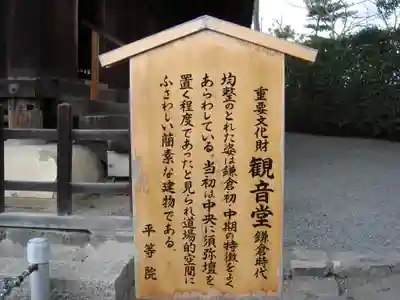 重要文化財 観音堂 鎌倉時代
均整のとれた姿は鎌倉初・中期の特徴をよく
あらわしている。当初は中央に須弥壇を
置く程度であったと見られ道場的空間に
ふさわしい簡素な建物である。
平等院